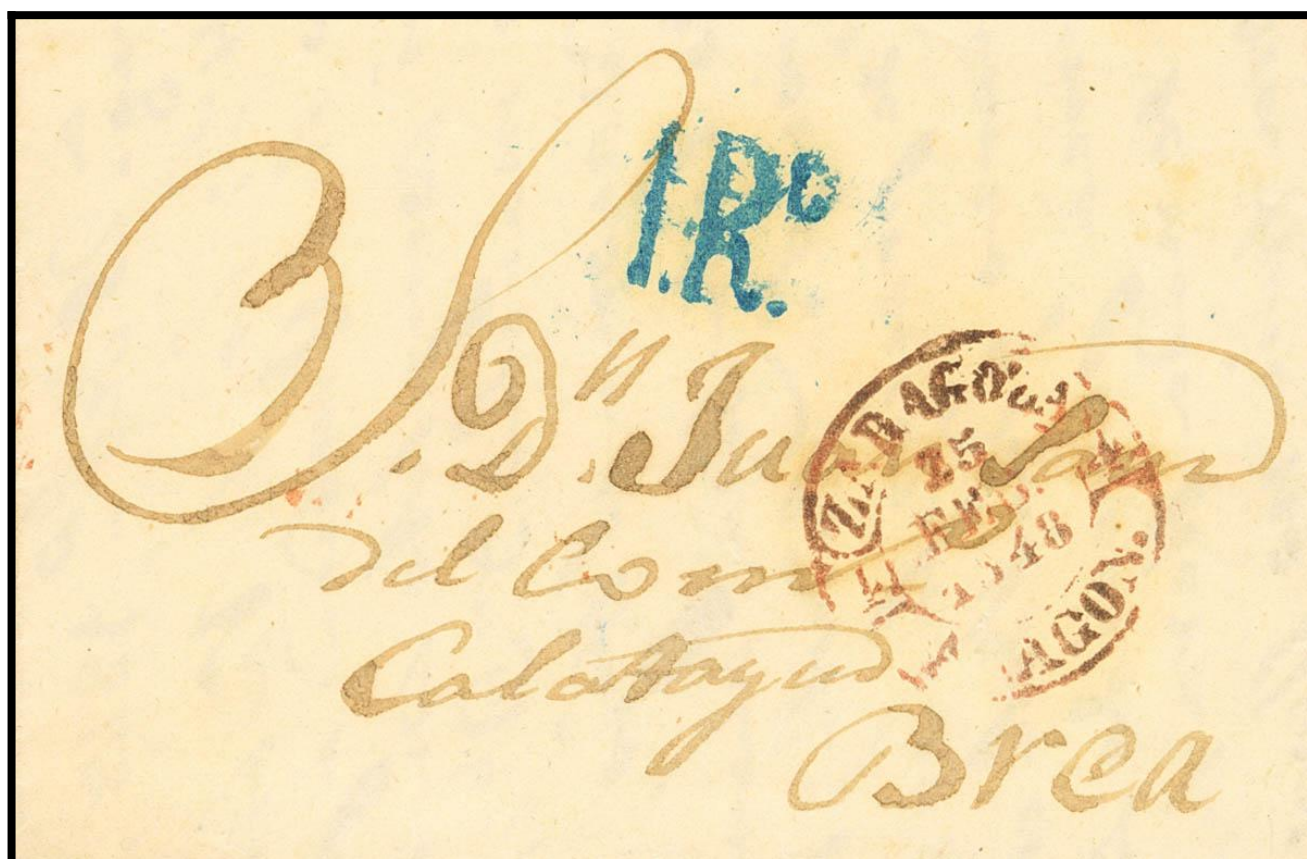 1.Rº.
S. Dⁿ. Juan
del
Calatayud
Brea
ZARAGOZA
25
FEB.
1848
ARAGON.